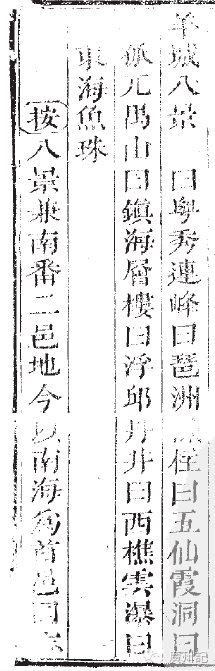 羊城八景 曰粵秀連峰曰琵洲柱曰五仙霞洞曰
孤兀禺山曰鎮海層樓曰浮邱丹井曰西樵雲瀑曰
東海魚珠
按八景兼南番二邑地今以南海爲首邑